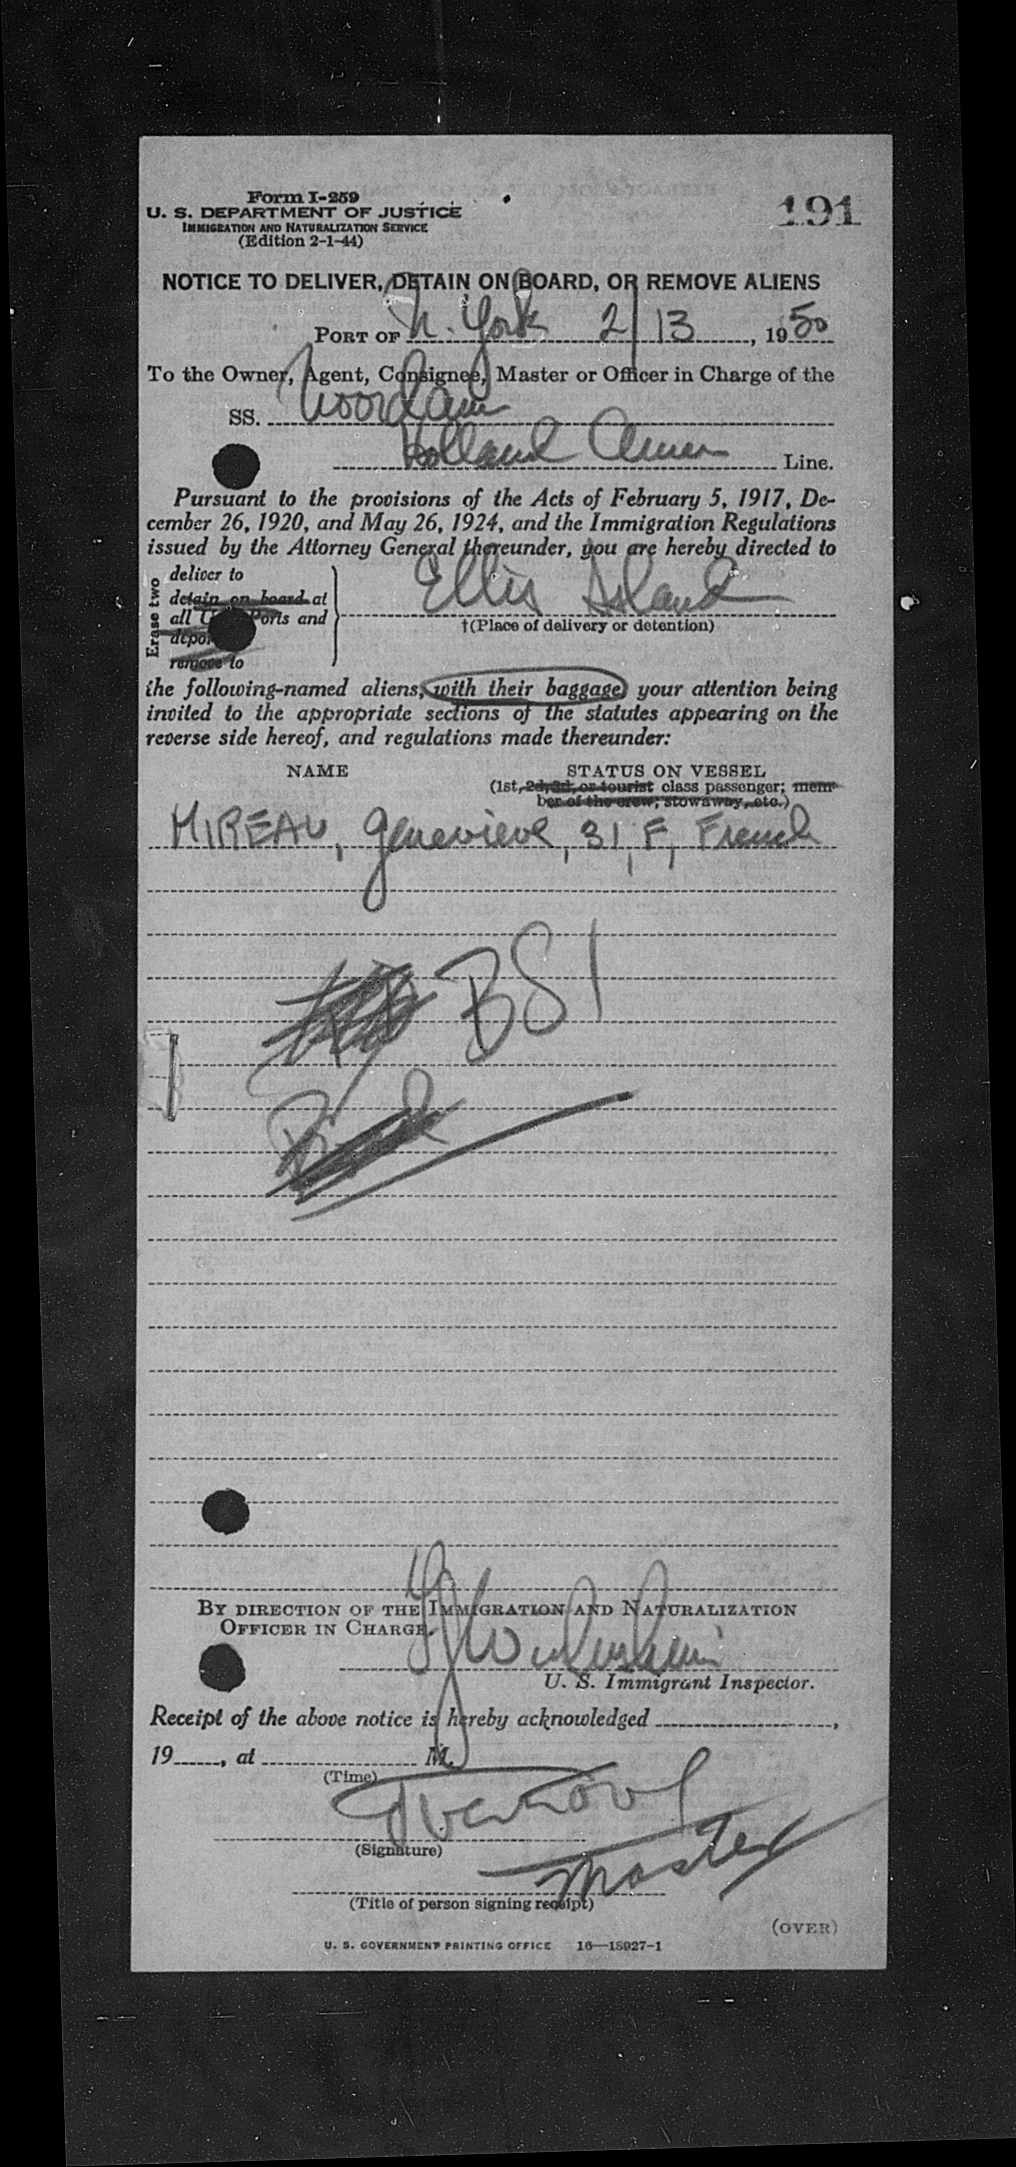 Form I-259
U. S. DEPARTMENT OF JUSTICE
IMMIGRATION AND NATURALIZATION SERVICE
(Edition 2-1-44)
191
NOTICE TO DELIVER, DETAIN ON BOARD, OR REMOVE ALIENS
PORT OF N. York 2/13, 1950
To the Owner, Agent, Consignee, Master or Officer in Charge of the
SS. Noordam
Holland Amer Line.
Pursuant to the provisions of the Acts of February 5, 1917, De-
cember 26, 1920, and May 26, 1924, and the Immigration Regulations
issued by the Attorney General thereunder, you are hereby directed to
Erase two
deliver to
detain on board at
all U. Ports and
remove to
Ellis Island
†(Place of delivery or detention)
the following-named aliens, with their baggage, your attention being
invited to the appropriate sections of the statutes appearing on the
reverse side hereof, and regulations made thereunder:
NAME STATUS ON VESSEL
(1st, 2d, 3d, or tourist class passenger; mem-
ber of the crew; stowaway, etc.)
MIREAU, Genevieve, 31, F, French
BSI
BY DIRECTION OF THE IMMIGRATION AND NATURALIZATION
OFFICER IN CHARGE.
U. S. Immigrant Inspector.
Receipt of the above notice is hereby acknowledged ,
19 , at M.
(Time)
(Signature)
Master
(Title of person signing receipt)
(OVER)
U. S. GOVERNMENT PRINTING OFFICE 16—18927-1